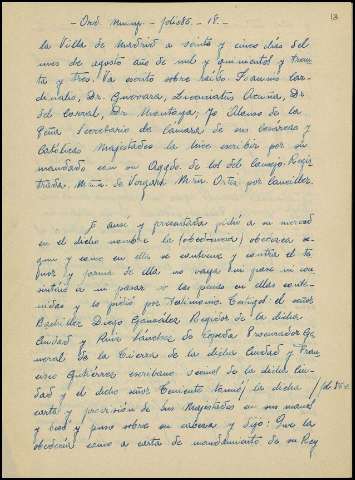 13
- Ord. Municip. - folio 85 - 18 -
la Villa de Madrid a veinte y cinco días del
mes de agosto año de mil y quinientos y trein
ta y tres. Va escrito sobre raído. Joannis Car-
dinalis, Dr. Guevara, Licenciatus Acuña, Dr.
del Corral, Dr. Montoya, Yo Alonso de la
Peña Secretario de Cámara de sus Cesáreas y
Católicas Majestades la hice escribir por su
mandado con su de los del Consejo. Regis
trada. Mrñ. de Vergara Mrñ. Ortiz por Canciller.
E ansí y presentada pidió a su merced
en el dicho nombre la (obedeciese) obedezca se-
gun y como en ella se contiene y contra el te
nor y forma de ella no vaya ni pase ni con
sintiere ir ni pasar so las penas en ella conte-
nidas y lo pidió por testimonio. Testigos el señor
Bachiller Diego González Regidor de la dicha
Ciudad y Ruiz Sánchez de Cepeda Procurador Ge
neral de la Tierra de la dicha Ciudad y Fran
cisco Gutiérrez escribano vecinos de la dicha Ciu-
dad y el dicho señor Teniente tomó la dicha /fol 85 v.
carta y provisión de Sus Majestades en sus manos
y besó y puso sobre su cabeza y dijo: Que la
obedecía como a carta de mandamiento de su Rey